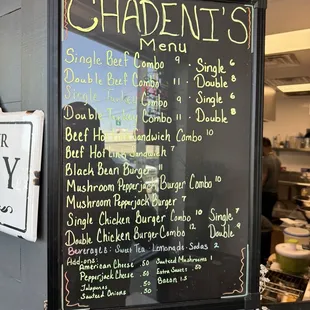 CHADENI'S
Menu
Single Beef Combo 9 - Single 6
Double Beef Combo 11 - Double 8
Single Turkey Combo 9 - Single 6
Double Turkey Combo 11 - Double 8
Beef Hot Link Sandwich Combo 10
Beef Hot Link Sandwich 7
Black Bean Burger 11
Mushroom Pepperjack Burger Combo 10
Mushroom Pepperjack Burger 7
Single Chicken Burger Combo 10 Single 7
Double Chicken Burger Combo 12 Double 9
Beverages: Sweet Tea Lemonade Sodas 2
Add-ons:
American Cheese .50 Sauteed Mushrooms 1
Pepperjack Cheese .50 Extra Sauce .50
Jalapenos .50 Bacon 1.5
Sauteed Onions .50
Y